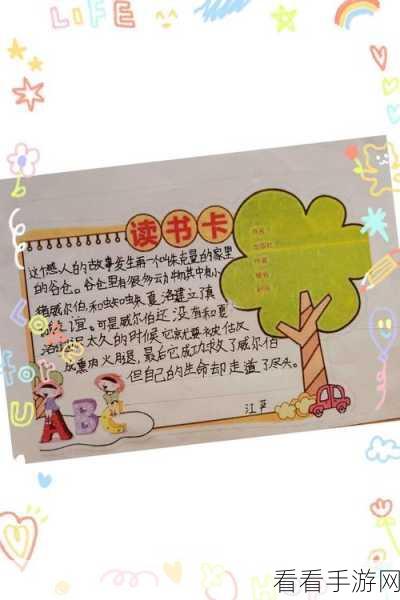 LIFE
读书卡
书名:
出版社:
作者:
这个感人的故事发生再一个叫朱克曼的家里
的谷仓。谷仓里有很多动物其中有小
猪威尔伯,和蜘蛛夏洛建立了真
之谊。可是威尔伯还没有和夏
太久的时候它就要被做成
熏肉火腿,最后它成功救了威尔伯
但自己的生命却走道了尽头。
ABC
看看手游网